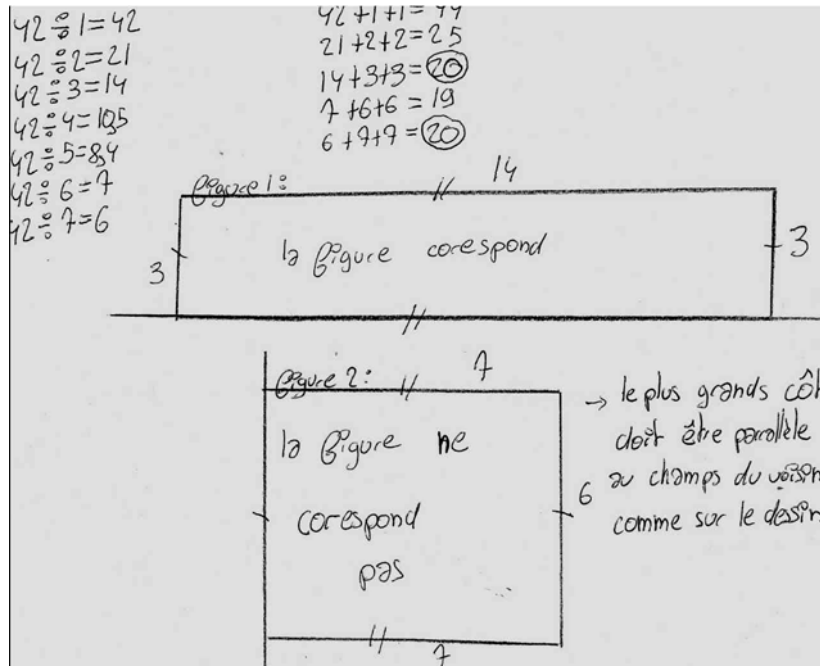 42÷1=42
42÷2=21
42÷3=14
42÷4=10,5
42÷5=8,4
42÷6=7
42÷7=6
42+1+1=44
21+2+2=25
14+3+3=20
7+6+6=19
6+7+7=20
figure 1:
14
3
la figure corespond
3
figure 2:
7
la figure ne
corespond
pas
6
7
→ le plus grands côt
doit être parrallèle
au champs du voisin
comme sur le dessin